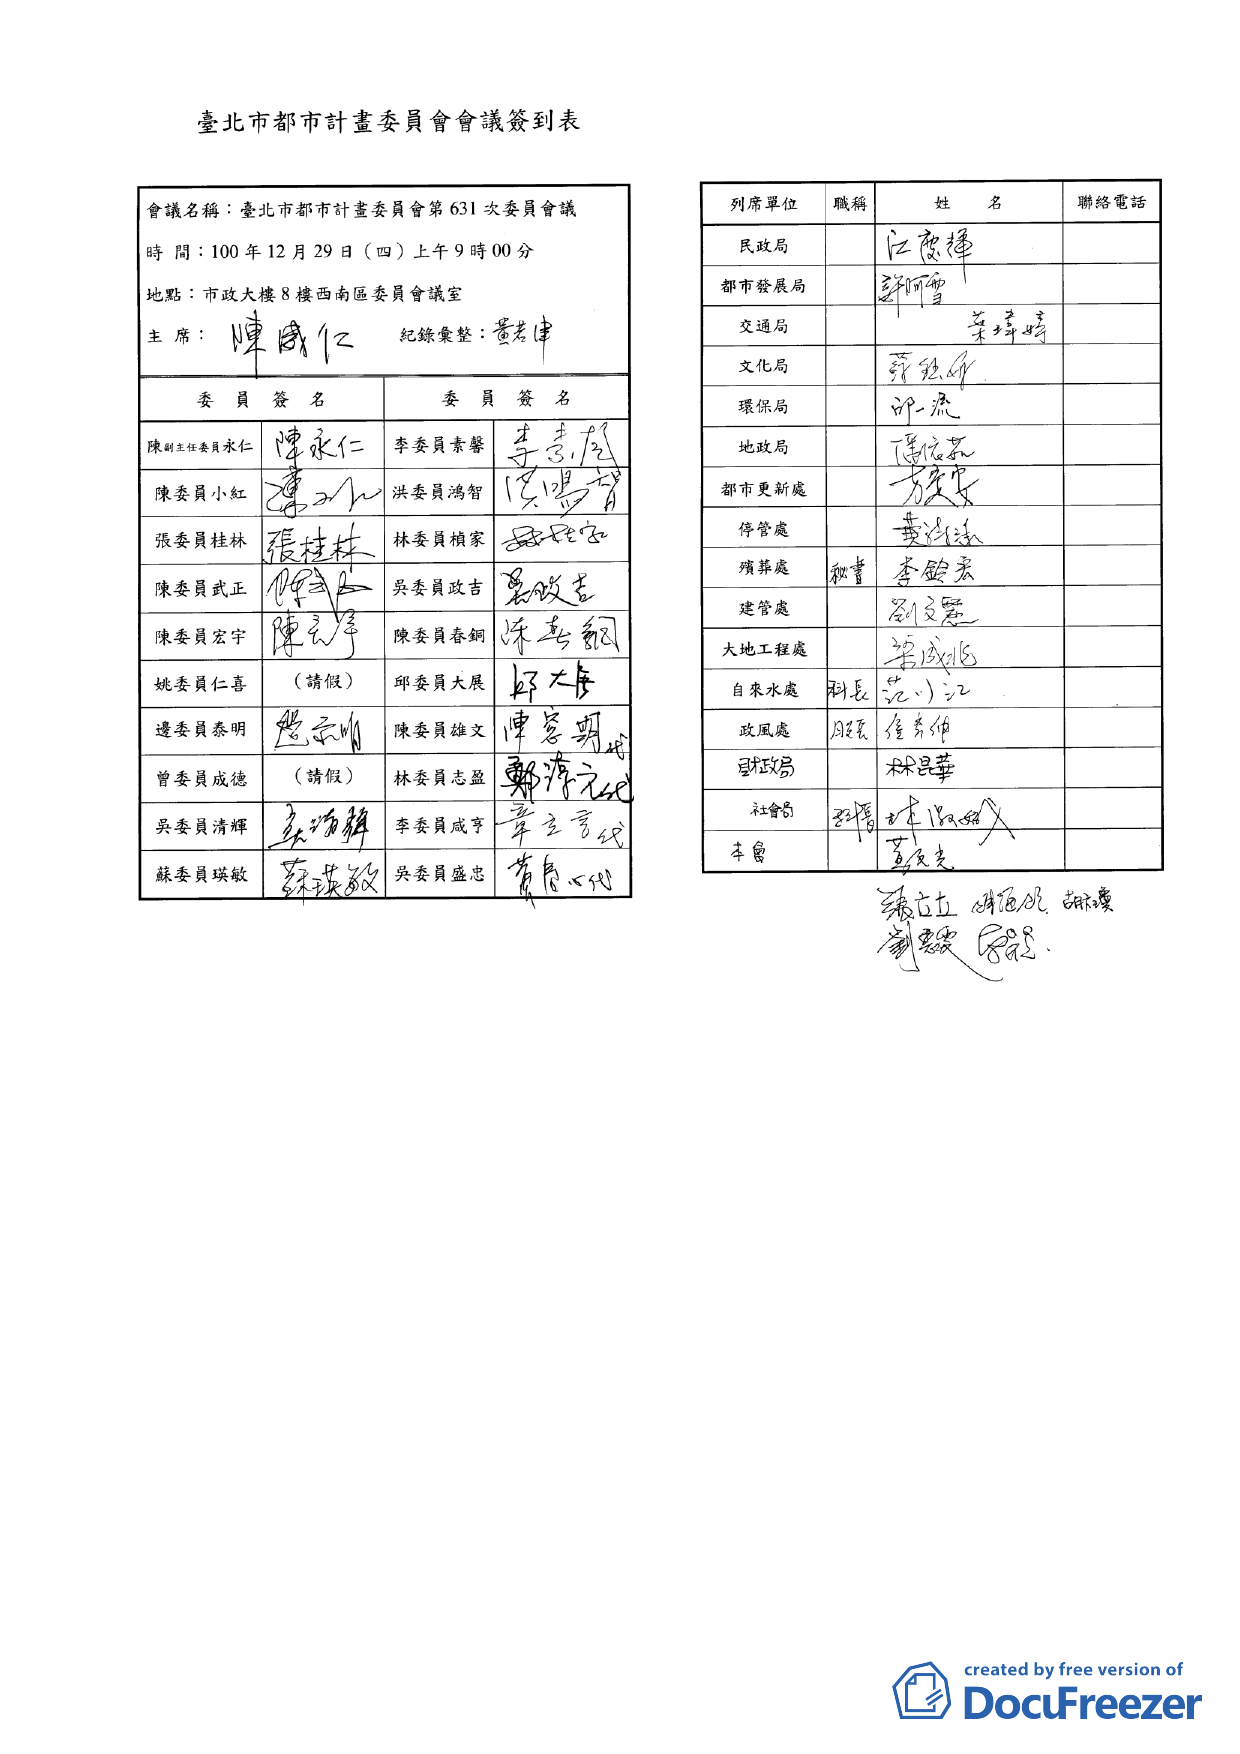 臺北市都市計畫委員會會議簽到表
會議名稱：臺北市都市計畫委員會第 631 次委員會議
時 間：100 年 12 月 29 日（四）上午 9 時 00 分
地點：市政大樓 8 樓西南區委員會議室
主 席： 陳威仁 紀錄彙整：黃若津
委 員 簽 名 委 員 簽 名
陳副主任委員永仁 陳永仁 李委員素馨 李素馨
陳委員小紅 陳小紅 洪委員鴻智 洪鴻智
張委員桂林 張桂林 林委員楨家 林楨家
陳委員武正 陳武正 吳委員政吉 吳政吉
陳委員宏宇 陳宏宇 陳委員春銅 陳春銅
姚委員仁喜 （請假） 邱委員大展 邱大展
邊委員泰明 邊泰明 陳委員雄文 代
曾委員成德 （請假） 林委員志盈 鄭淳元代
吳委員清輝 吳清輝 李委員咸亨 章立言代
蘇委員瑛敏 蘇瑛敏 吳委員盛忠 代
列席單位 職稱 姓 名 聯絡電話
民政局 江慶輝
都市發展局 許阿雪
交通局 葉瑋婷
文化局
環保局 邱一流
地政局
都市更新處
停管處
殯葬處 秘書 李鈴宏
建管處
大地工程處 梁成兆
自來水處 科長 范川江
政風處 股長
財政局 林昆華
社會局
本會
胡方瓊
created by free version of
DocuFreezer